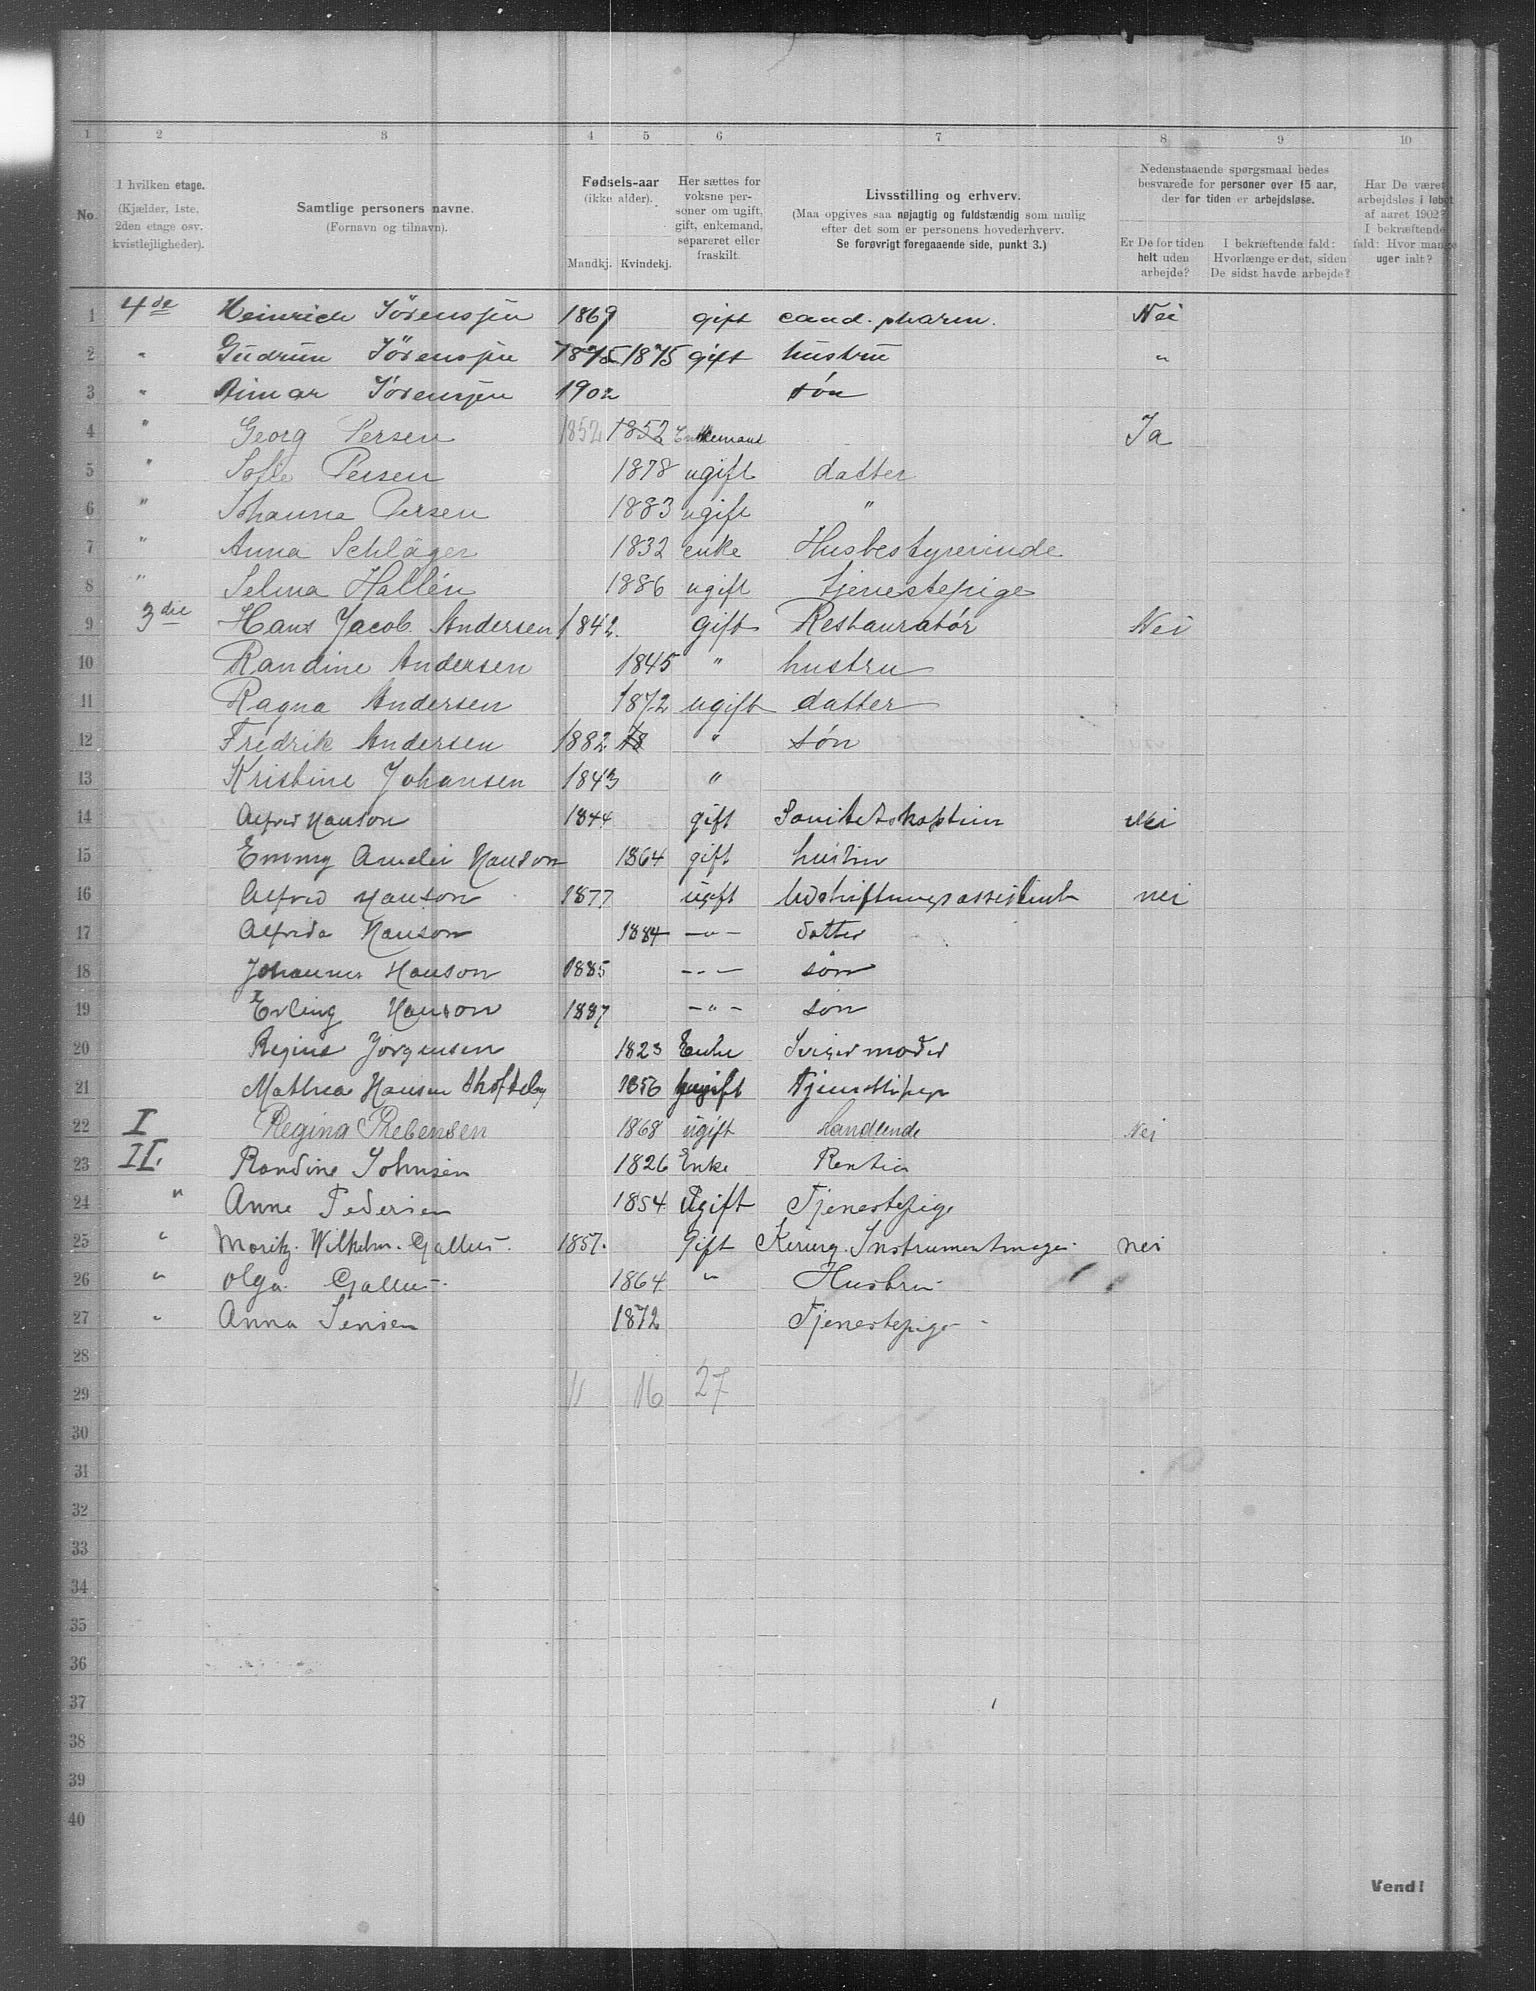 1 2 3 4 5 6 7 8 9 10
No.
I hvilken etage.
(Kjælder, 1ste,
2den etage osv.
kvistlejligheder).
Samtlige personers navne.
(Fornavn og tilnavn).
Fødsels-aar
(ikke alder).
Mandkj. Kvindekj.
Her sættes for
voksne per-
soner om ugift,
gift, enkemand,
separeret eller
fraskilt.
Livsstilling og erhverv.
(Maa opgives saa nøjagtig og fuldstændig som mulig
efter det som er personens hovederhverv.
Se forøvrigt foregaaende side, punkt 3.)
Nedenstaaende spørgsmaal bedes
besvarede for personer over 15 aar,
der for tiden er arbejdsløse.
Er De for tiden
helt uden
arbejde?
I bekræftende fald:
Hvorlænge er det, siden
De sidst havde arbejde?
Har De været
arbejdsløs i løbet
af aaret 1902?
I bekræftende
fald: Hvor mange
uger ialt?
1 4de Heinrich Sörenssen 1869 gift cand. pharm. Nei
2 " Gudrun Sörenssen 1875 1875 gift hustru "
3 " Sörenssen 1902 søn
4 " Georg Persen 1852 1852 Enkemand Ja
5 " Sofie Persen 1878 ugift datter
6 " Johanna Persen 1883 ugift "
7 " Anna Schläger 1832 enke Husbestyrerinde
8 " Selma Hallén 1886 ugift tjenestepige
9 3die Hans Jacob Andersen 1842. gift Restauratør Nei
10 Randine Andersen 1845 " hustru
11 Ragna Andersen 1872 ugift datter
12 Fredrik Andersen 1882 18 " søn
13 Kristine Johansen 1843 "
14 Alfred Hanson 1844 gift Sanitetskaptein Nei
15 Emmy Amelie Hanson 1864 gift hustru
16 Alfred Hanson 1877 ugift Udskiftningsassistent nei
17 Alfrida Hanson 1884 — " — datter
18 Johannes Hanson 1885 — " — søn
19 Erling Hanson 1887 — " — søn
20 Regine Jørgensen 1823 Enke Svigermoder
21 Mathea Hansen 1856 ugift Tjenestepige
22 I Regina Rebensen 1868 ugift Handlende Nei
23 II. Randine Johnsen 1826 Enke Rentier
24 " Anne Pedersen 1854 Ugift Tjenestepige
25 " Moritz. Wilhelm. Gallus. 1857. Gift Kirurg. Instrumentmager nei
26 " Olga Gallus. 1864 " Hustru
27 " Anna Jensen 1872 Tjenestepige
28
29 11 16 27
30
31
32
33
34
35
36
37
38
39
40
Vend!